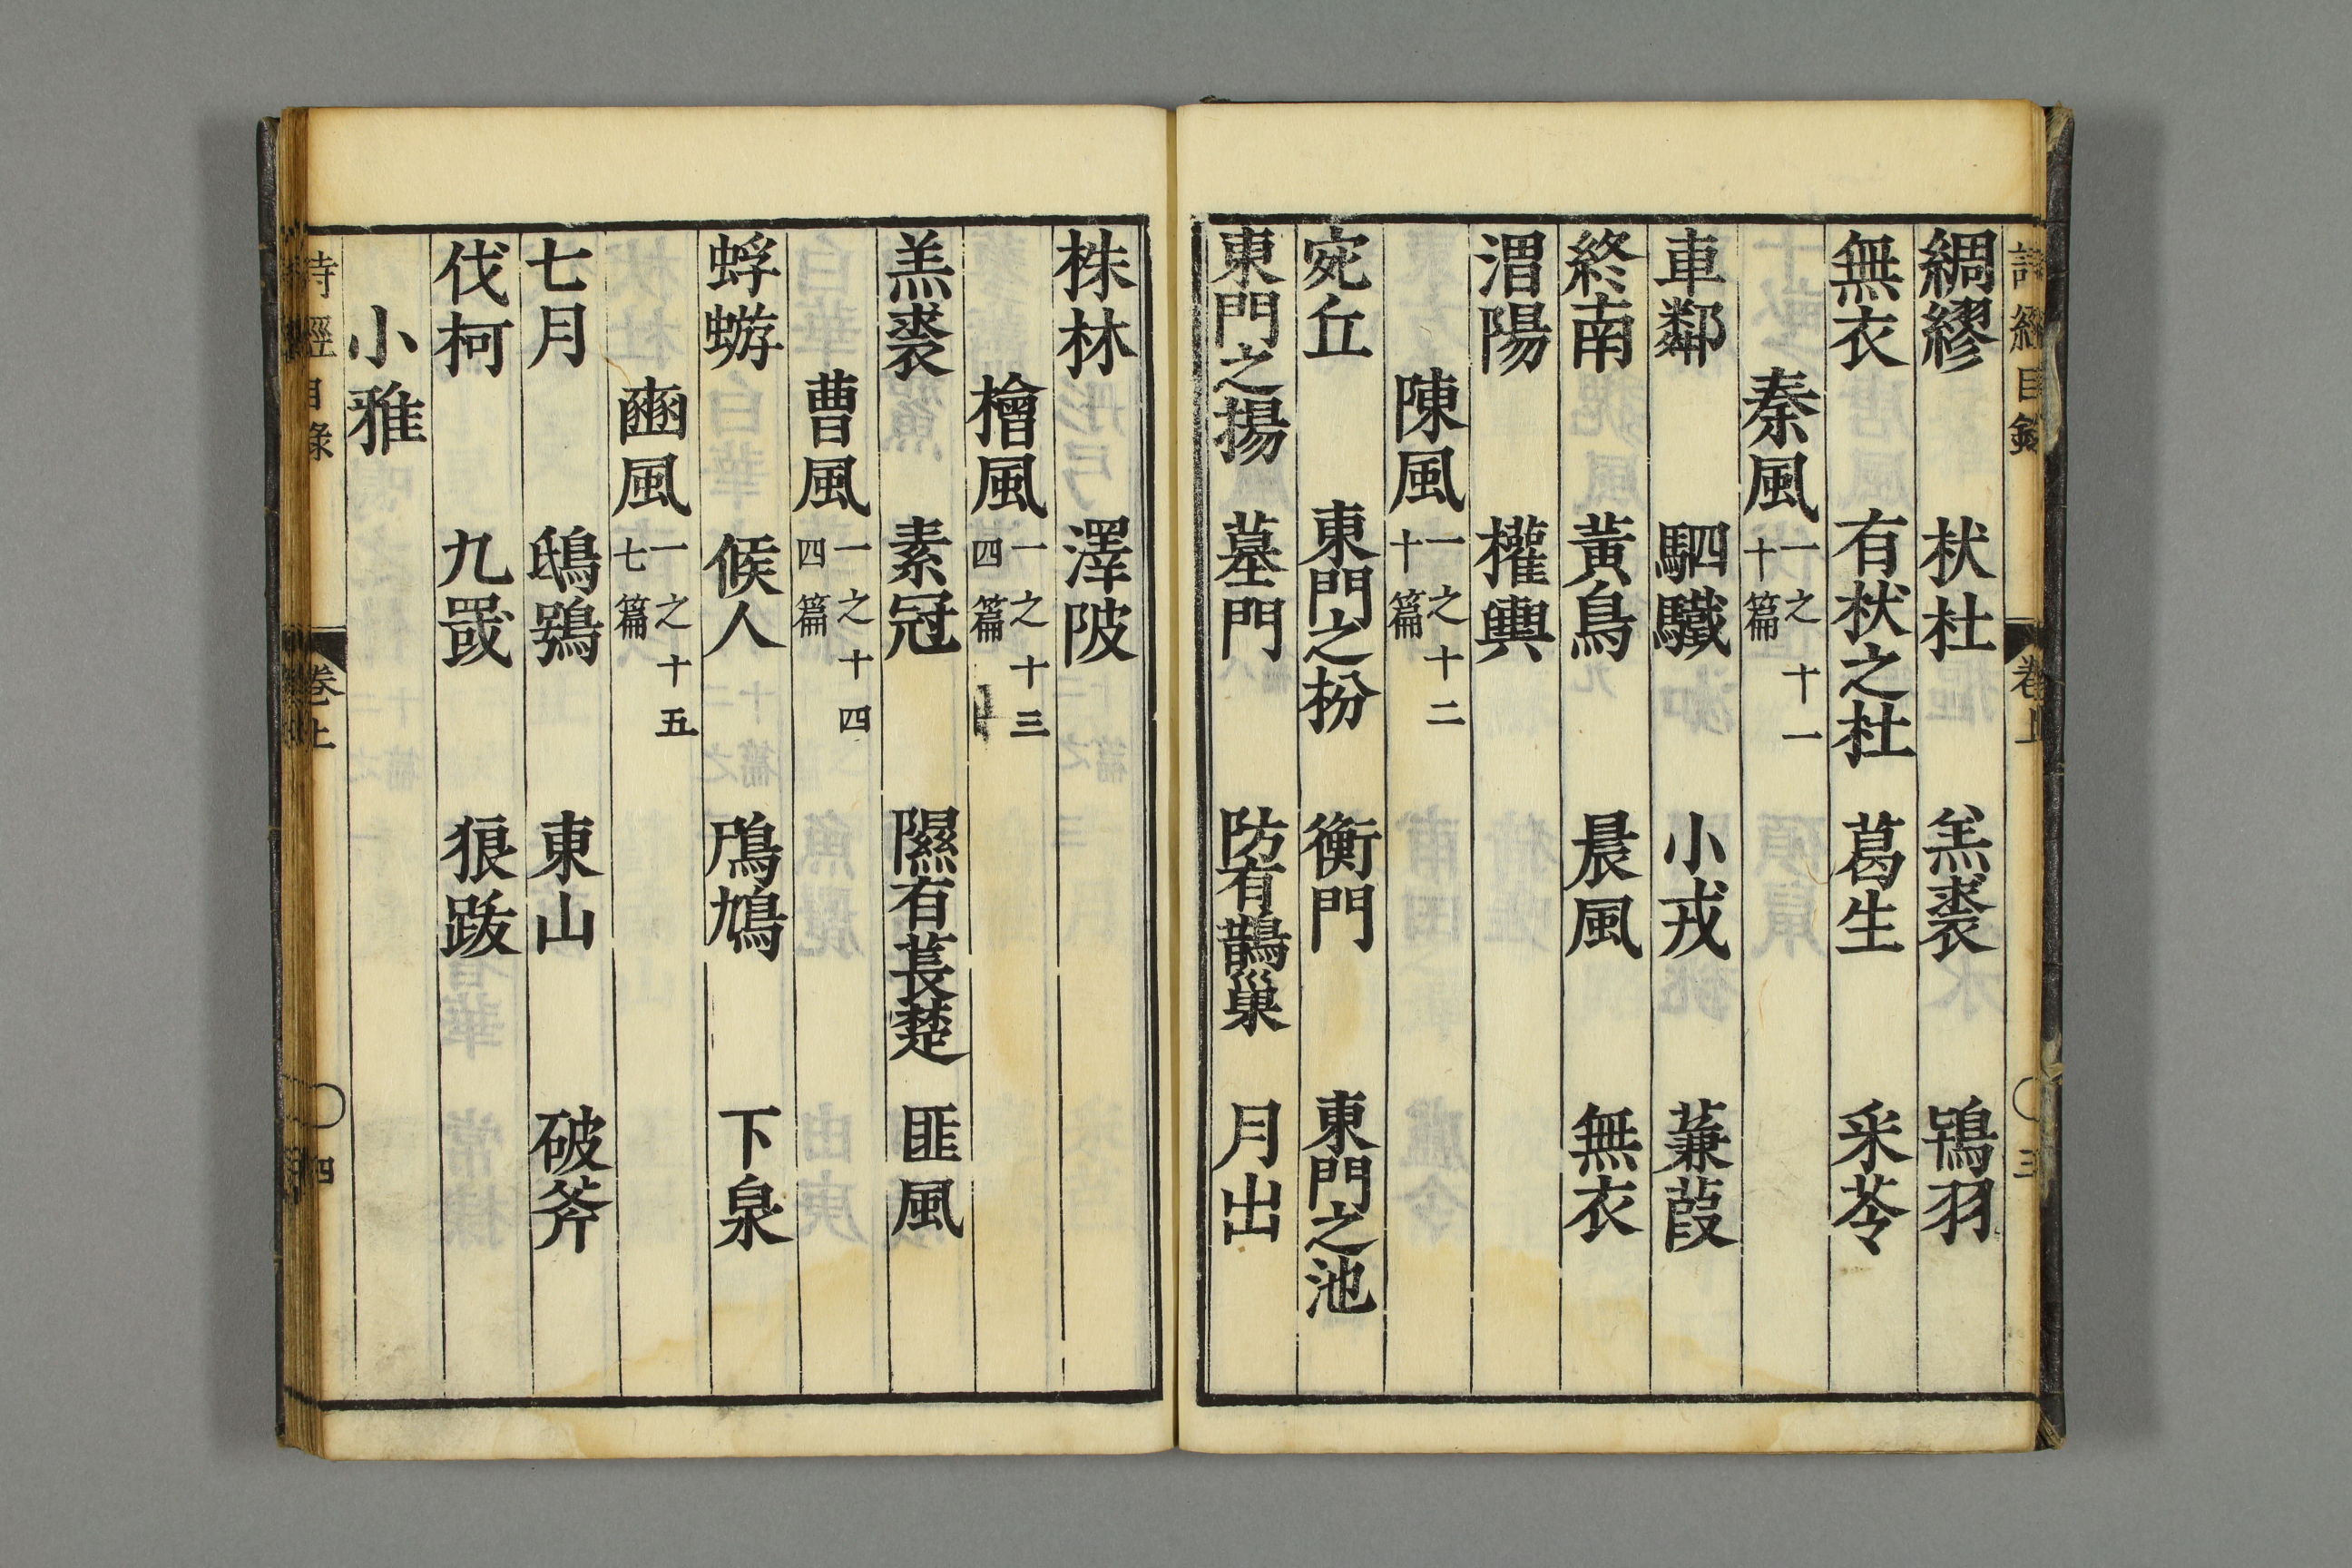 詩經目錄 卷上 三
綢繆 杕杜 羔裘 鴇羽
無衣 有杕之杜 葛生 采苓
秦風 一之十一 十篇
車鄰 駟驖 小戎 蒹葭
終南 黃鳥 晨風 無衣
渭陽 權輿
陳風 一之十二 十篇
宛丘 東門之枌 衡門 東門之池
東門之楊 墓門 防有鵲巢 月出
株林 澤陂
檜風 一之十三 四篇
羔裘 素冠 隰有萇楚 匪風
曹風 一之十四 四篇
蜉蝣 候人 鳲鳩 下泉
豳風 一之十五 七篇
七月 鴟鴞 東山 破斧
伐柯 九罭 狼跋
小雅
詩經目錄 卷上 四